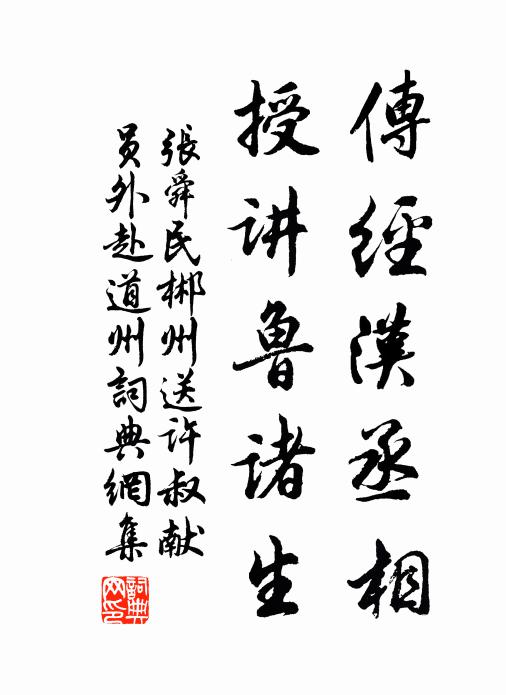 傳經漢丞相
授讲魯诸生
張舜民郴州送许叔献
員外赴道州詞典網集
詞典网印